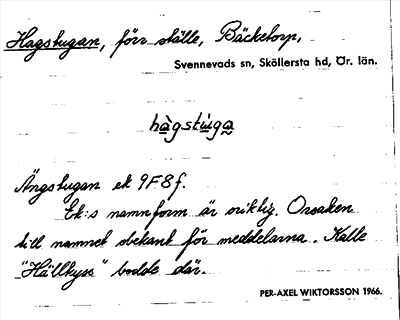 Hagstugan, förr ställe, Bäcketorp,
Svennevads sn, Sköllersta hd, Ör. län.
hàgstu̇ga
Ängstugan ek 9F8f.
Ek:s namnform är oriktig. Orsaken
till namnet obekant för meddelarna. Kalle
"Hällkyss" bodde där.
PER-AXEL WIKTORSSON 1966.